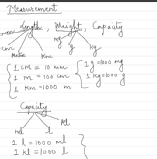 Measurement
Length, Weight, Capacity
mm
cm
Metre
Km
mg
g
kg
1 cm = 10 mm
1 m = 100 cm
1 Km = 1000 m
1 g = 1000 mg
1 kg = 1000 g
Capacity
ml
l
kl
1 l = 1000 ml
1 kl = 1000 l